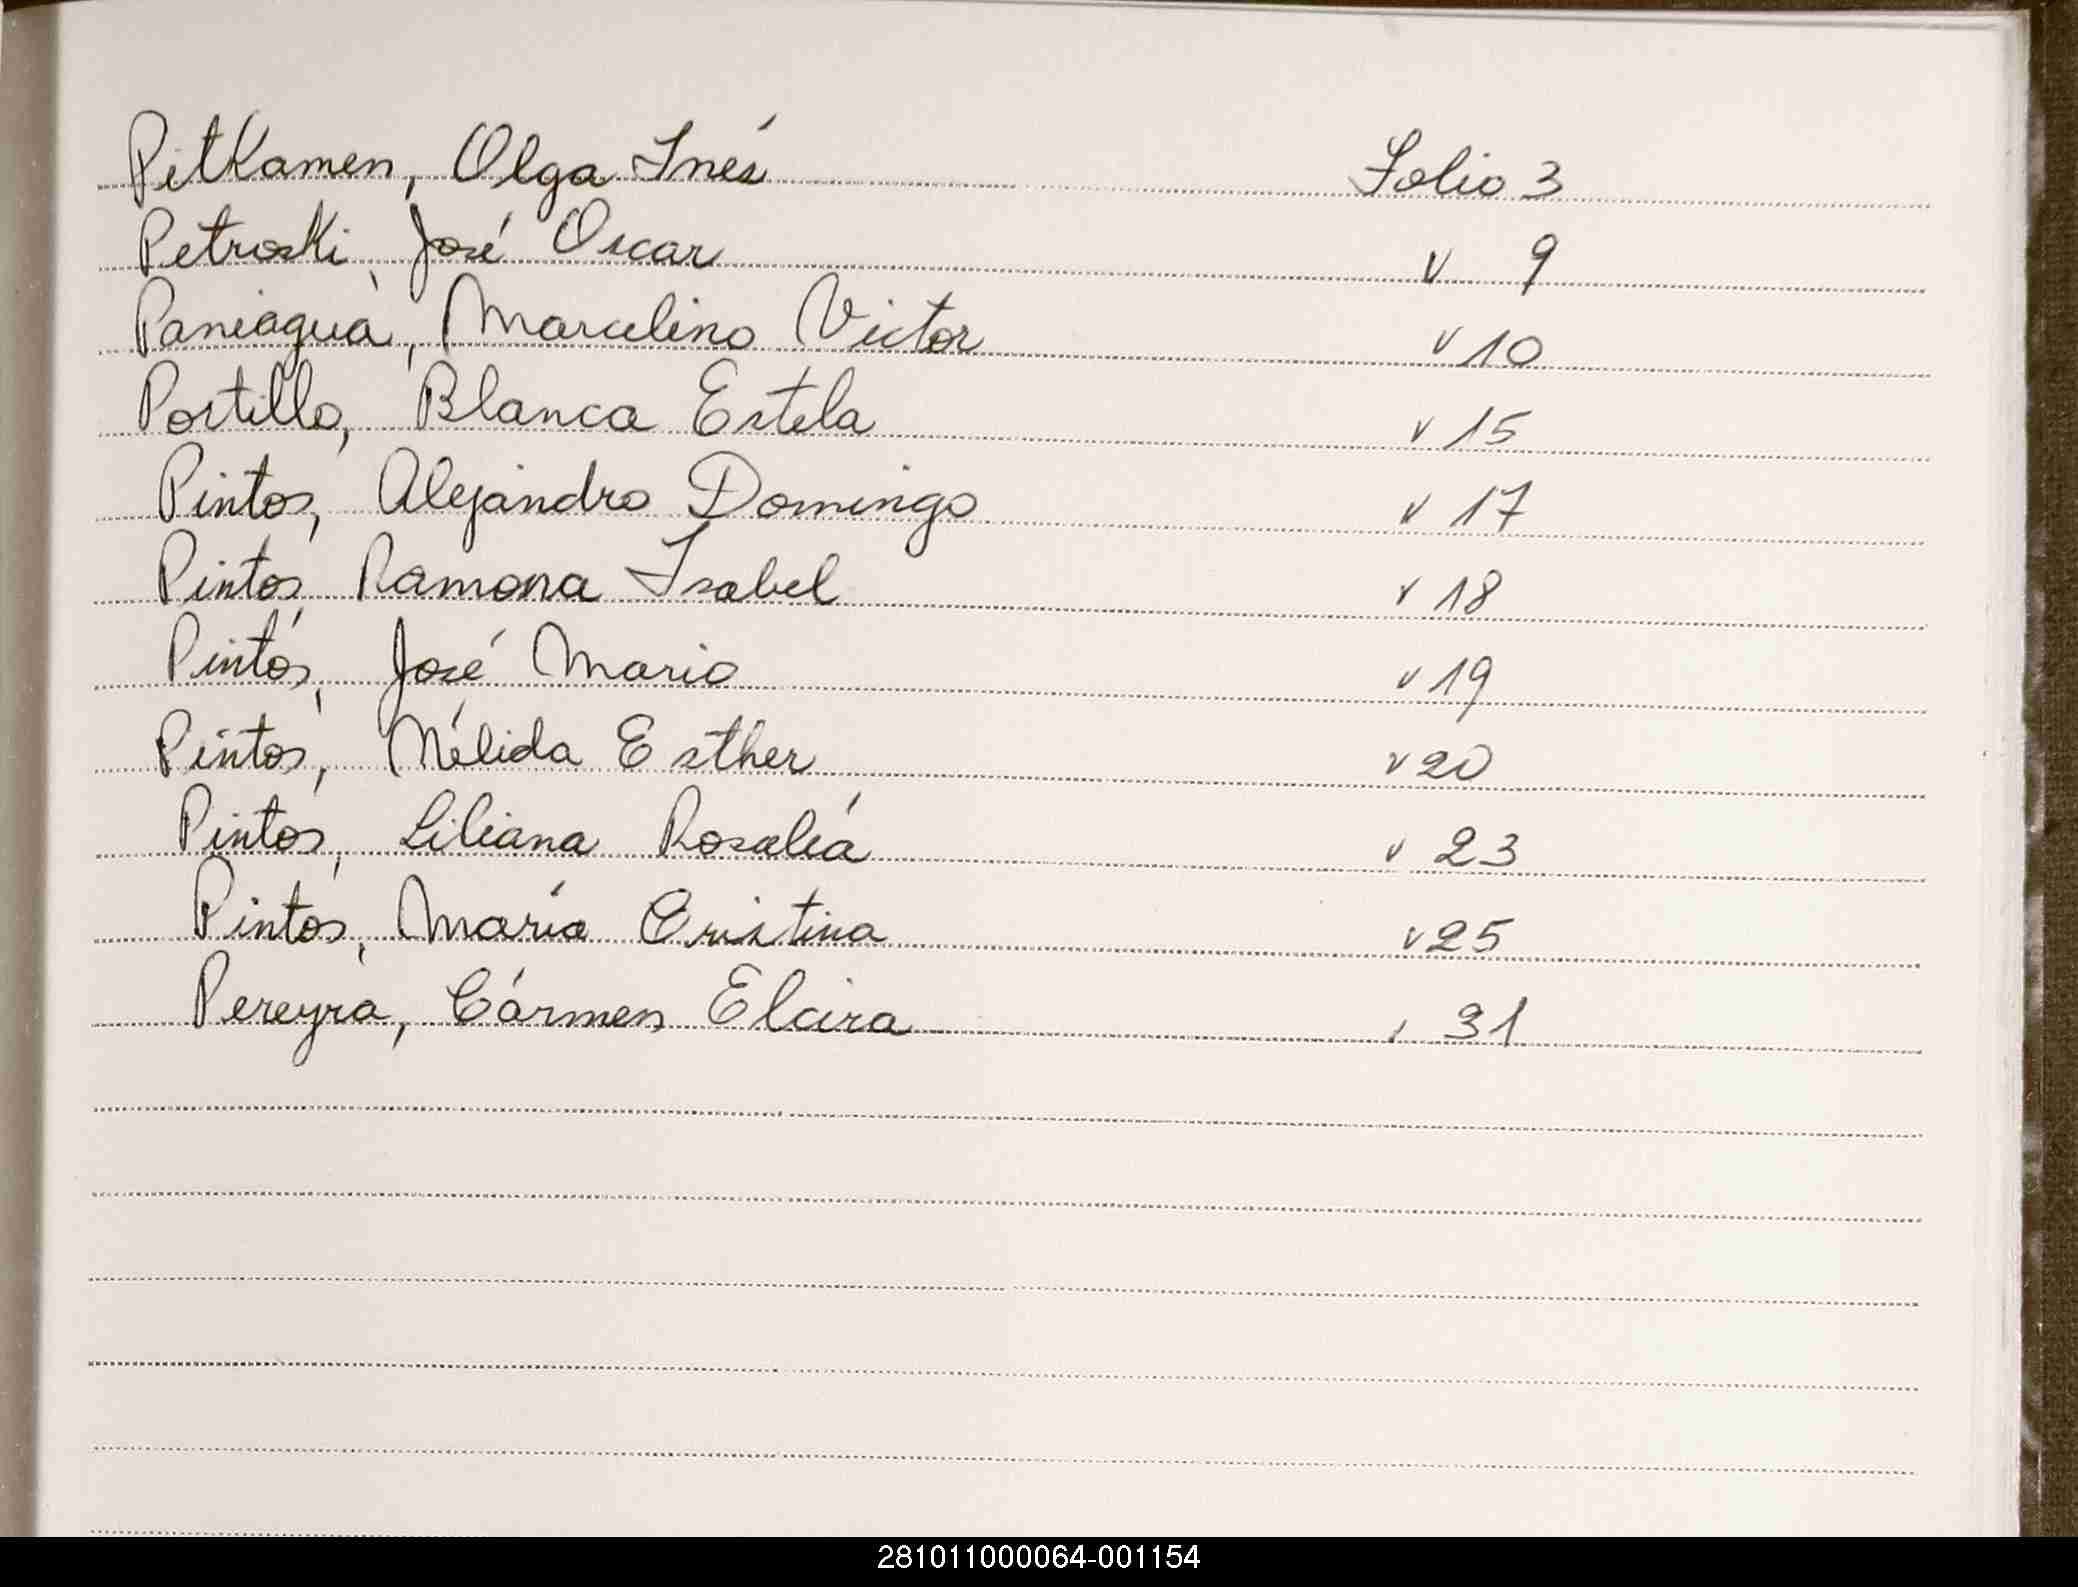 Pitkamen, Olga Inés Folio 3
Petroski, José Oscar v 9
Paniagua, Marcelino Victor v 10
Portillo, Blanca Estela v 15
Pintos, Alejandro Domingo v 17
Pintos, Ramona Isabel v 18
Pintos, José Mario v 19
Pintos, Nélida Esther v 20
Pintos, Liliana Rosalía v 23
Pintos, María Cristina v 25
Pereyra, Cármen Elcira , 31
281011000064-001154